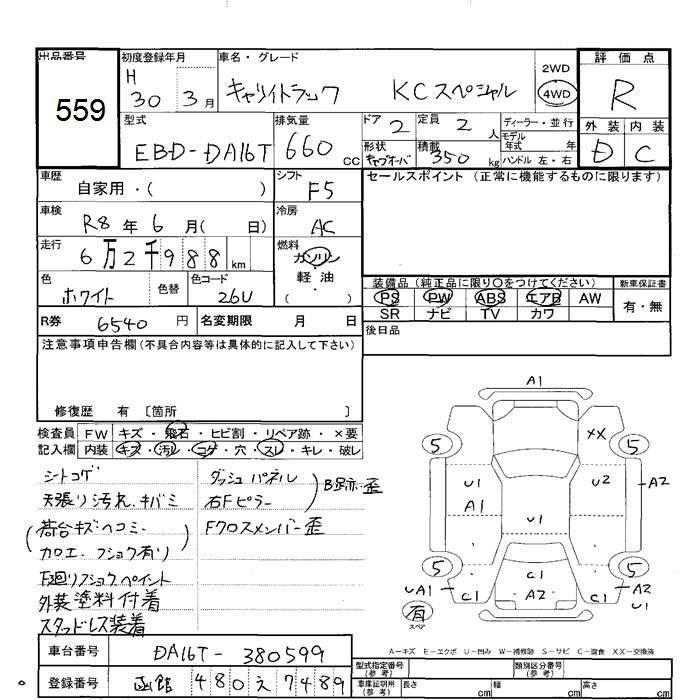 出品番号 初度登録年月 車名・グレード 評価点
559
H 30 3月
キャリイトラック KCスペシャル
2WD
4WD
R
型式 EBD-DA16T
排気量 660 cc
ドア 2
定員 2 人
ディーラー・並行
モデル年式 年
形状 キャブオーバ
積載 350 kg
ハンドル 左・右
外装 内装
D C
車歴 自家用・( )
シフト F5
セールスポイント (正常に機能するものに限ります)
車検 R8年6月( 日)
冷房 AC
走行 6万2千988km
燃料 ガソリン
軽油
( )
色 ホワイト 色替
色コード 26U
装備品(純正品に限り〇をつけてください) 新車保証書
PS PW ABS エアB AW
SR ナビ TV カワ
有・無
R券 6540円
名変期限 月 日
後日品
注意事項申告欄(不具合内容等は具体的に記入して下さい)
修復歴 有 〔箇所 〕
検査員記入欄
FW キズ・飛石・ヒビ割・リペア跡・×要
内装 キズ・汚レ・コゲ・穴・スレ・キレ・破レ
シートコゲ
天張り汚れ、キバミ
(荷台キズヘコミ、
カロエ、フショク有り)
下廻りフショクペイント
外装塗料付着
スタッドレス装着
ダッシュパネル
右Fピラー
)B跡、歪
Fクロスメンバー歪
A1
XX
5 5
U1 A1
U2
A2
U1
5 5
C1
A2
UA1 C1
C1 A2 U1
有
スペア
A-キズ E-エクボ U-凹み W-補修跡 S-サビ C-腐食 XX-交換済
車台番号 DA16T-380599
登録番号 函館 480 え 7489
型式指定番号(参考)
類別区分番号(参考)
車庫証明用(参考) 長さ cm 幅 cm 高さ cm